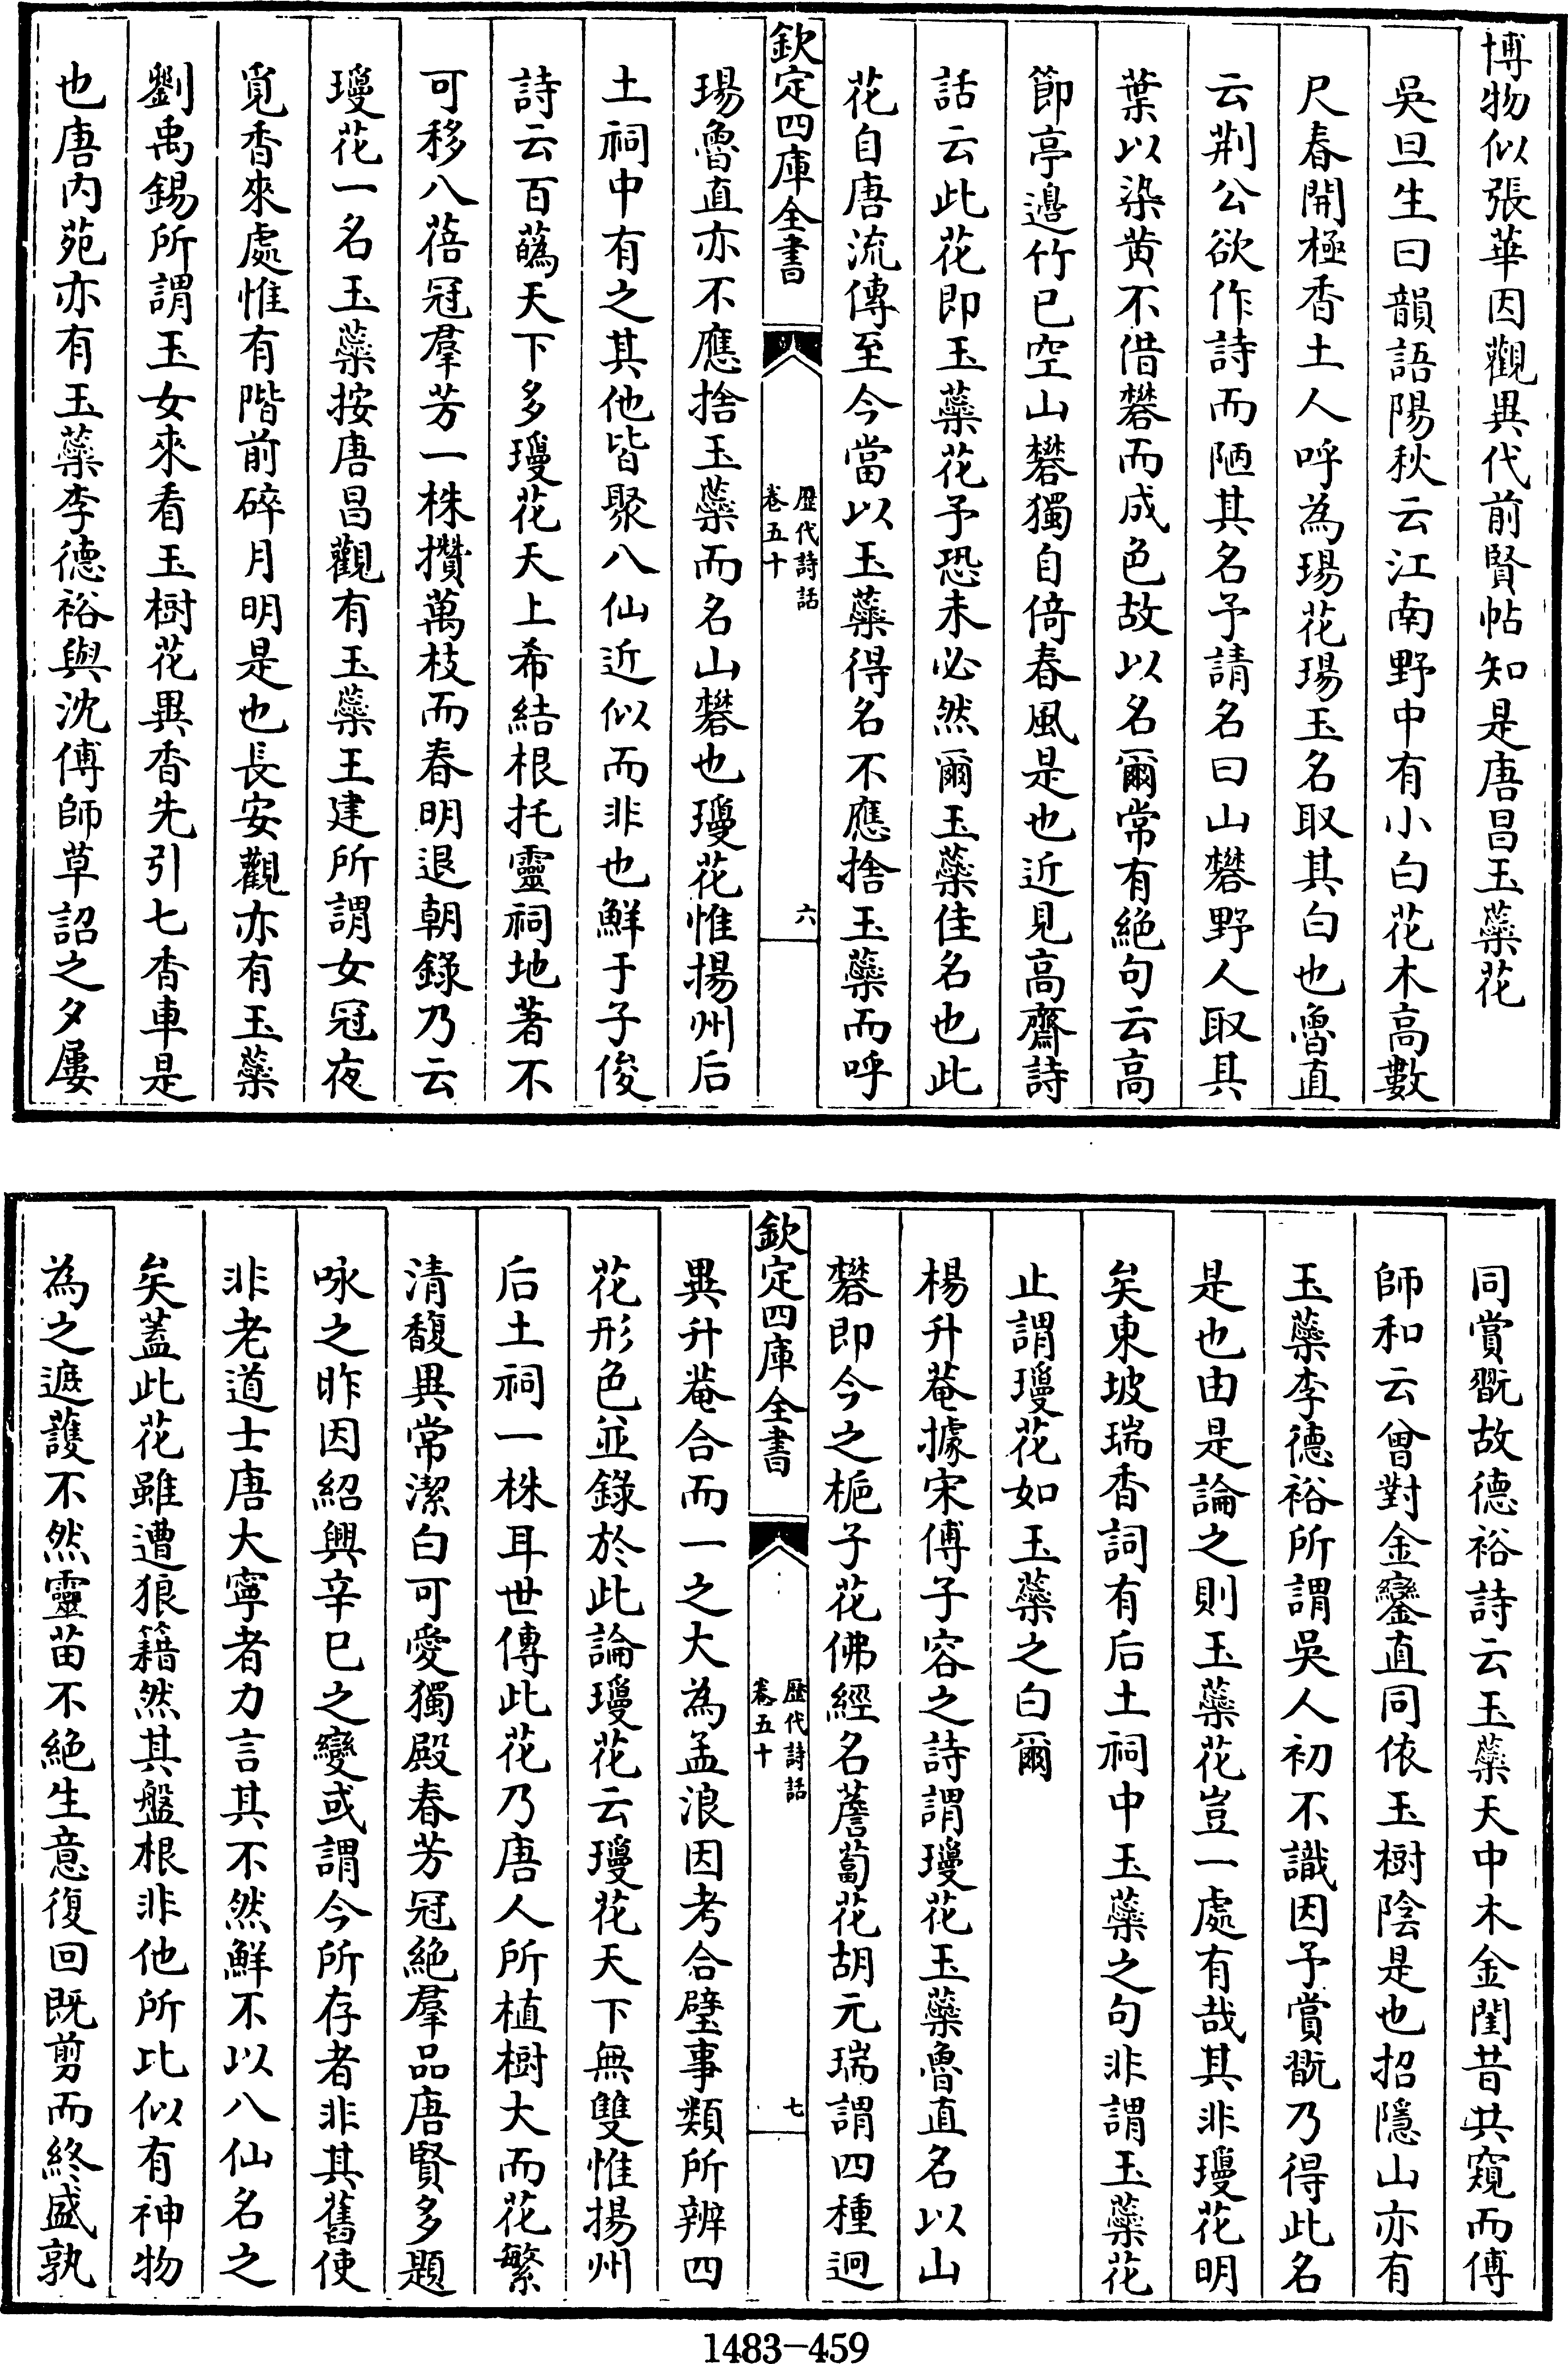 博物似張華因觀異代前賢帖知是唐昌玉蘂花
吳旦生曰韻語陽秋云江南野中有小白花木高數
尺春開極香土人呼為瑒花瑒玉名取其白也魯直
云荆公欲作詩而陋其名予請名曰山礬野人取其
葉以染黄不借礬而成色故以名爾常有絶句云高
節亭邉竹已空山礬獨自倚春風是也近見高齋詩
話云此花即玉蘂花予恐未必然爾玉蘂佳名也此
花自唐流傳至今當以玉蘂得名不應捨玉蘂而呼
欽定四庫全書
歴代詩話
卷五十
六
瑒魯直亦不應捨玉蘂而名山礬也瓊花惟揚州后
土祠中有之其他皆聚八仙近似而非也鮮于子俊
詩云百蘤天下多瓊花天上希結根托靈祠地著不
可移八蓓冠羣芳一株攢萬枝而春明退朝錄乃云
瓊花一名玉蘂按唐昌觀有玉蘂王建所謂女冠夜
覓香來處惟有階前碎月明是也長安觀亦有玉蘂
劉禹錫所謂玉女來看玉樹花異香先引七香車是
也唐内苑亦有玉蘂李德裕與沈傅師草詔之夕屢
同賞翫故德裕詩云玉蘂天中木金閨昔共窺而傅
師和云曾對金鑾直同依玉樹陰是也招隱山亦有
玉蘂李德裕所謂吳人初不識因予賞翫乃得此名
是也由是論之則玉蘂花豈一處有哉其非瓊花明
矣東坡瑞香詞有后土祠中玉蘂之句非謂玉蘂花
止謂瓊花如玉蘂之白爾
楊升菴據宋傅子容之詩謂瓊花玉蘂魯直名以山
礬即今之梔子花佛經名薝蔔花胡元瑞謂四種迥
欽定四庫全書
歴代詩話
卷五十
七
異升菴合而一之大為孟浪因考合璧事類所辨四
花形色並錄於此論瓊花云瓊花天下無雙惟揚州
后土祠一株耳世傳此花乃唐人所植樹大而花繁
清馥異常潔白可愛獨殿春芳冠絶羣品唐賢多題
咏之昨因紹興辛巳之變或謂今所存者非其舊使
非老道士唐大寧者力言其不然鮮不以八仙名之
矣蓋此花雖遭狼籍然其盤根非他所比似有神物
為之遮護不然靈苗不絶生意復回既剪而終盛孰
1483-459